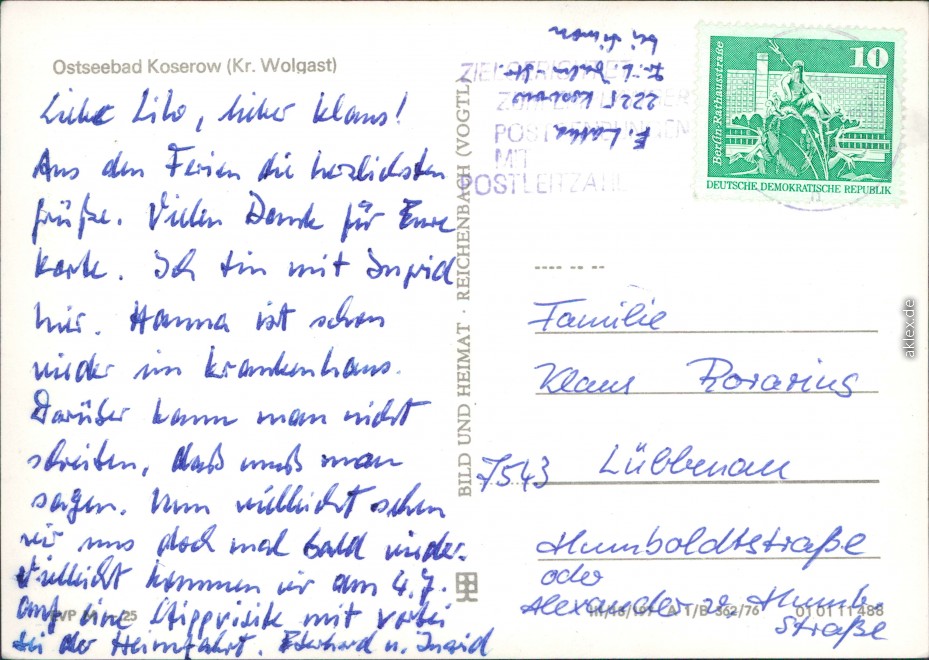 Ostseebad Koserow (Kr. Wolgast)
Liebe Lilo, lieber Klaus!
Aus den Ferien die herzlichsten
Grüße. Vielen Dank für Eure
Karte. Ich bin mit Ingrid
hier. Hanna ist schon
wieder im Krankenhaus.
Darüber kann man nicht
schreiben, daß muß man
sagen. Nun vielleicht sehen
wir uns doch mal bald wieder.
Vielleicht kommen wir am 4.7.
auf eine Stippvisite mit vorbei
bei der Heimfahrt. Eberhard u. Ingrid
25
BILD UND HEIMAT · REICHENBACH (VOGTL)
E.
2225 Koserow
bei Simon
POSTSENDUNGEN
MIT
POSTLEITZAHL
10
Berlin · Rathausstraße
DEUTSCHE DEMOKRATISCHE REPUBLIK
Familie
Klaus
7543 Lübbenau
Humboldtstraße
oder
Alexander v. Humb.
Straße
A 1/B 362/76 01 01 11 488
aklex.de